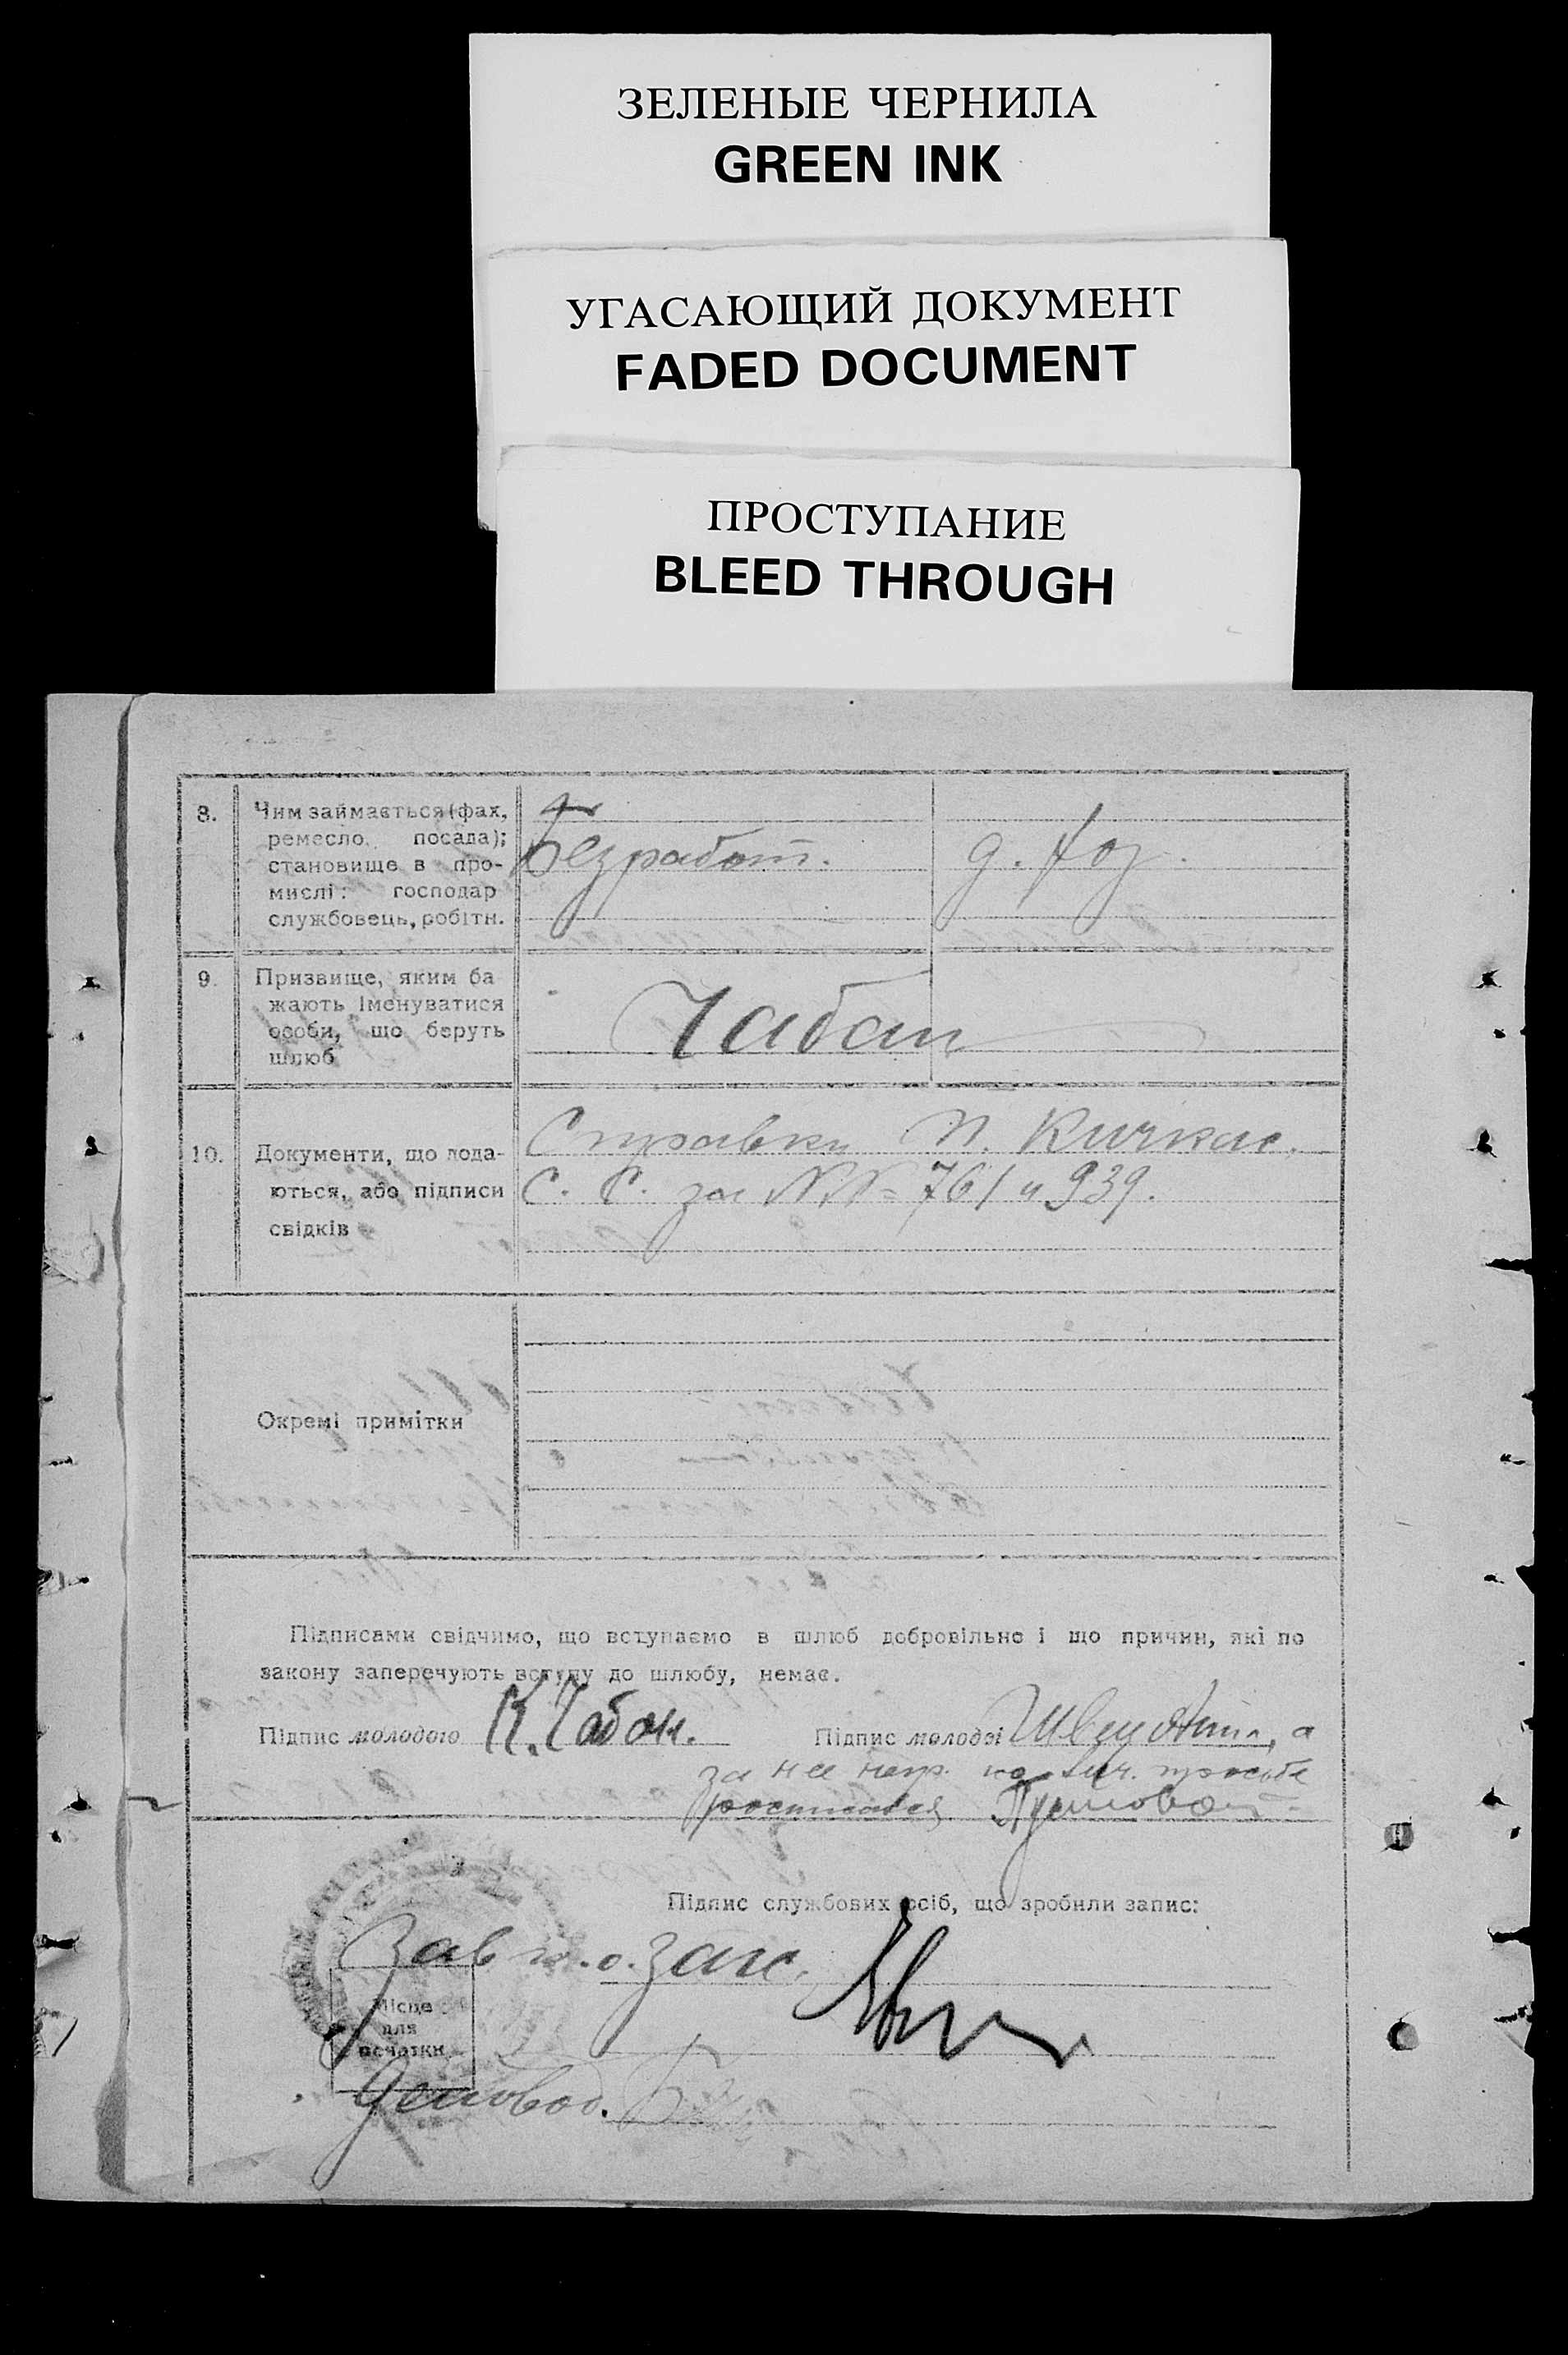 ЗЕЛЕНЫЕ ЧЕРНИЛА
GREEN INK
УГАСАЮЩИЙ ДОКУМЕНТ
FADED DOCUMENT
ПРОСТУПАНИЕ
BLEED THROUGH
8.
Чим займається (фах,
ремесло, посада);
становище в про-
мислі: господар
службовець, робітн.
Безработ.
д. хоз.
9.
Призвище, яким ба
жають іменуватися
особи, що беруть
шлюб
Чабан
10.
Документи, що пода-
ються, або підписи
свідків
Справки П. Кичкас.
С. С. за №№ 761 и 939.
Окремі примітки
Підписами свідчимо, що вступаємо в шлюб добровільно і що причин, які по
закону заперечують вступу до шлюбу, немає.
Підпис молодого К. Чабан.
Підпис молодої а
за нее негр. по лич. просьбе
росписался
Підпис службових осіб, що зробили запис:
Зав п.о. Загс.
Місце
для
печатки
Деловод.